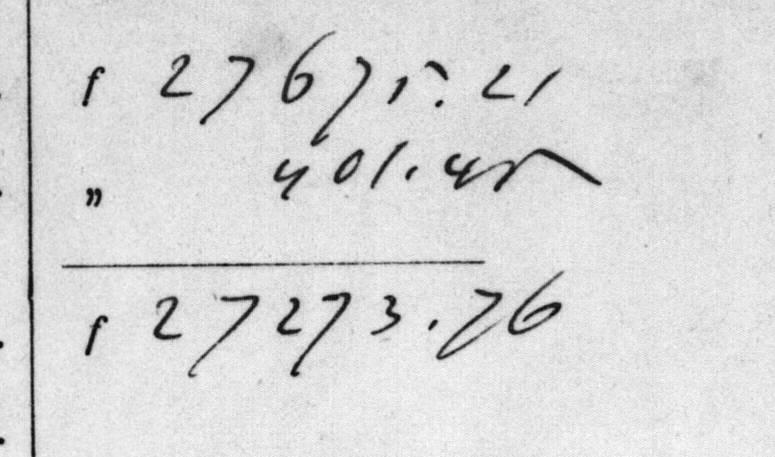 f 27675.21
„ 401.45
f 27273.76